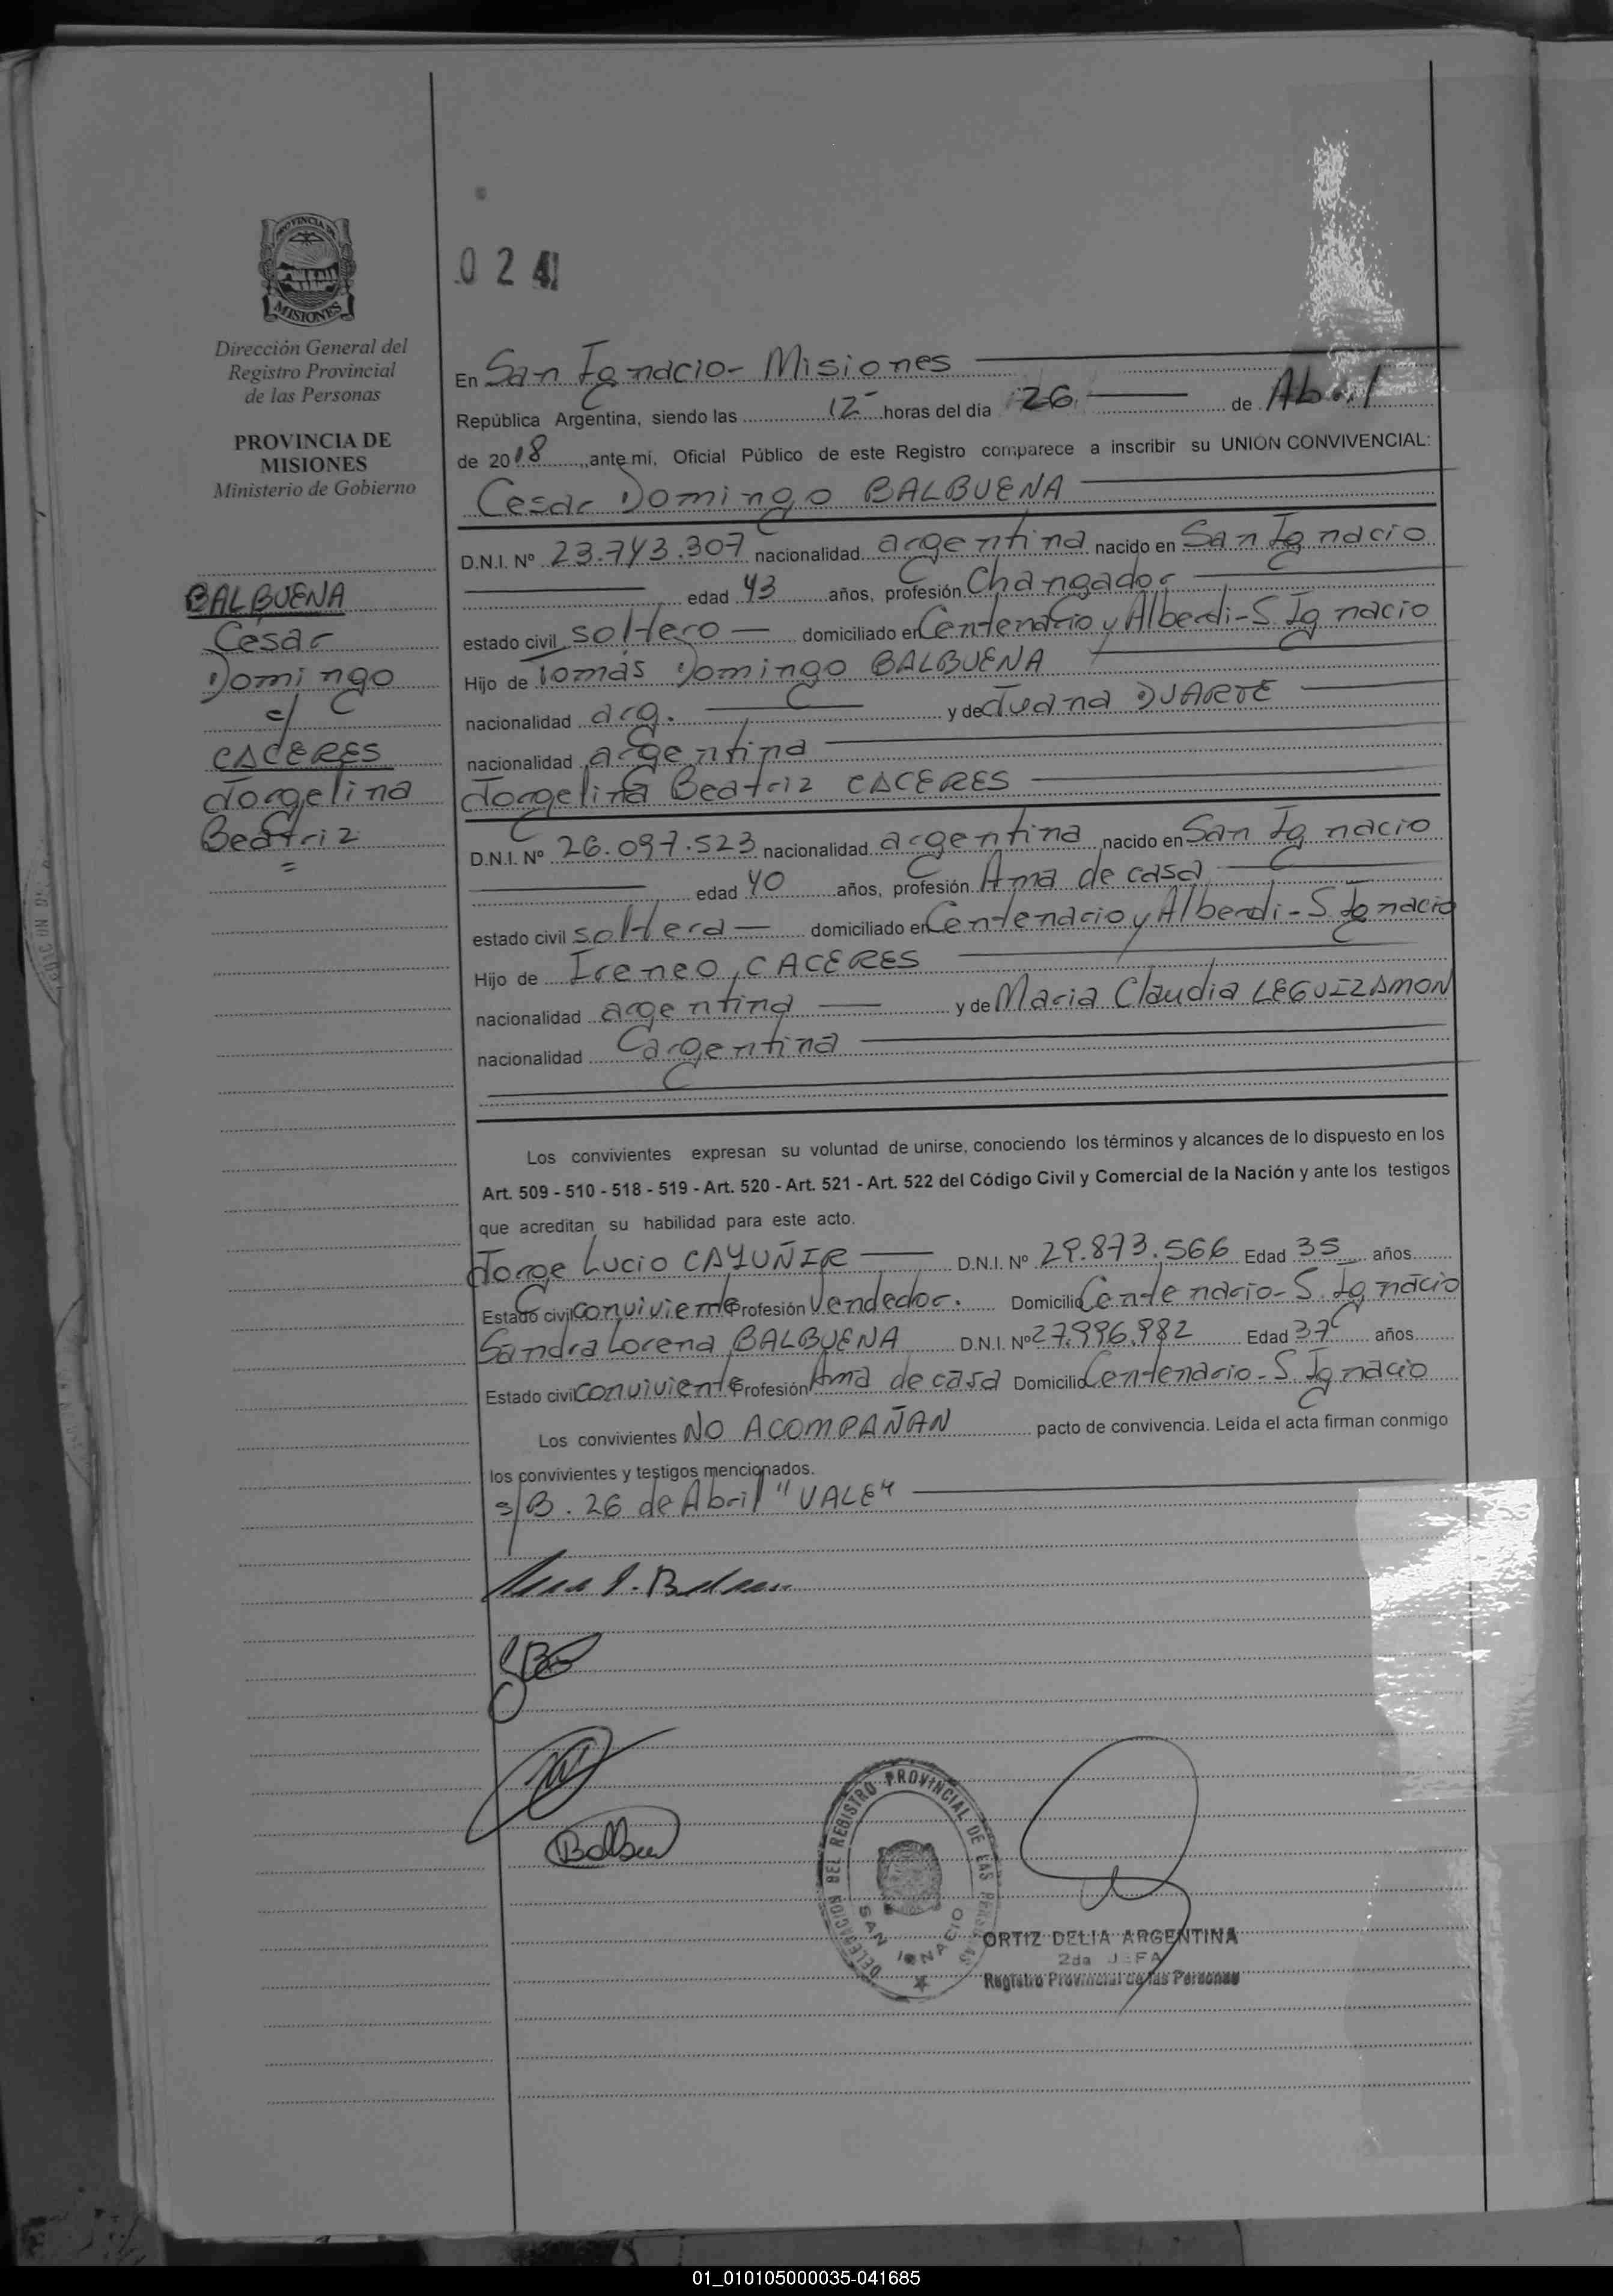 PROVINCIA DE
MISIONES
Dirección General del
Registro Provincial
de las Personas
PROVINCIA DE
MISIONES
Ministerio de Gobierno
BALBUENA
Cesar
Domingo
c/
CACERES
Jorgelina
Beatriz
=
024
En San Ignacio - Misiones
República Argentina, siendo las 12 horas del día 26 de Abril
de 2018, ante mi, Oficial Público de este Registro comparece a inscribir su UNIÓN CONVIVENCIAL:
Cesar Domingo BALBUENA
D.N.I. Nº 23.743.307 nacionalidad argentina nacido en San Ignacio
edad 43 años, profesión Changador
estado civil soltero — domiciliado en Centenario y Alberdi - S. Ignacio
Hijo de Tomás Domingo BALBUENA
nacionalidad arg. y de Juana DUARTE
nacionalidad argentina
Jorgelina Beatriz CACERES
D.N.I. Nº 26.097.523 nacionalidad argentina nacido en San Ignacio
edad 40 años, profesión Ama de casa
estado civil soltera — domiciliado en Centenario y Alberdi - S. Ignacio
Hijo de Ireneo CACERES
nacionalidad argentina y de Maria Claudia LEGUIZAMON
nacionalidad argentina
Los convivientes expresan su voluntad de unirse, conociendo los términos y alcances de lo dispuesto en los
Art. 509 - 510 - 518 - 519 - Art. 520 - Art. 521 - Art. 522 del Código Civil y Comercial de la Nación y ante los testigos
que acreditan su habilidad para este acto.
Jorge Lucio CAYUÑIR D.N.I. Nº 29.873.566 Edad 35 años
Estado civil conviviente Profesión Vendedor. Domicilio Centenario - S. Ignacio
Sandra Lorena BALBUENA D.N.I. Nº 27.996.982 Edad 37 años
Estado civil conviviente Profesión Ama de casa Domicilio Centenario - S. Ignacio
Los convivientes NO ACOMPAÑAN pacto de convivencia. Leída el acta firman conmigo
los convivientes y testigos mencionados.
s/B. 26 de Abril "VALE"
DELEGACION DEL REGISTRO PROVINCIAL DE LAS PERSONAS
SAN IGNACIO
ORTIZ DELIA ARGENTINA
2da JEFA
Registro Provincial de las Personas
01_010105000035-041685